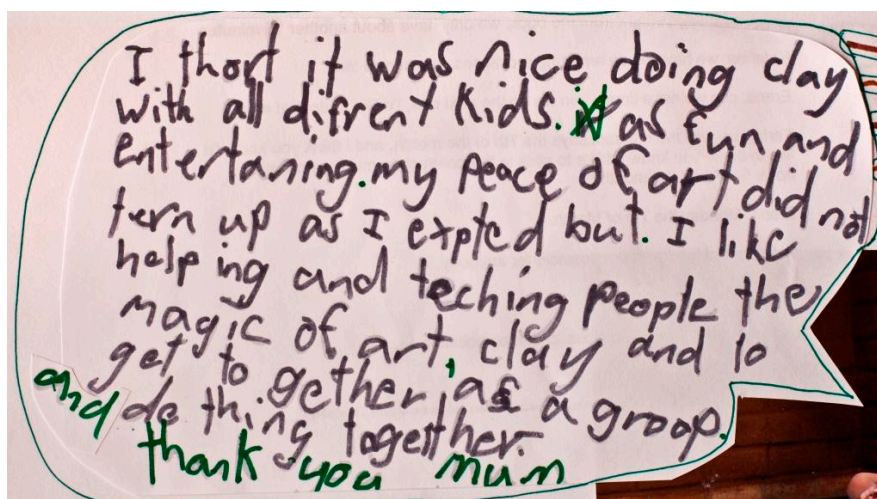 I thort it was nice doing clay
with all difrent kids. it as fun and
entertaning. my peace of art did not
tern up as I expted but. I like
help ing and teching people the
magic of art, clay and to
get to gether, as a groop.
and do thing together.
thank you mum